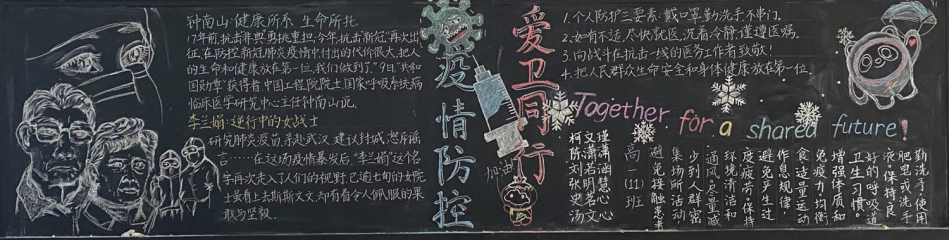 钟南山:健康所系 生命所托
17年前,抗击非典勇挑重担,今年抗击新冠,再次出
征,在防控新冠肺炎疫情中付出的代价很大,把人
的生命和健康放在第一位,我们做到了。"9日,"共和
国勋章"获得者,中国工程院院士,国家呼吸系统病
临床医学研究中心主任钟南山说。
李兰娟:逆行中的女战士
研究肺炎疫苗,亲赴武汉,建议封城,怒斥谣
言……在这场疫情暴发后,"李兰娟"这个名
字再次走入了人们的视野,已逾七旬的女院
士虽看上去斯斯文文,却有着令人佩服的果
敢与坚毅
疫情防控
爱卫同行
加油
1.个人防护三要素:戴口罩勤洗手不串门。
2.如有不适,尽快就医,沉着冷静,谨遵医嘱。
3.向战斗在抗击一线的医务工作者致敬!
4.把人民群众生命安全和身体健康放在第一位。
Together for a shared future!
勤洗手,使用
肥皂或洗手
液。保持良
好的呼吸道
卫生习惯。
增强体质和
免疫力,均衡
饮食,适量运动
作息规律,
避免产生过
度疲劳。保持
环境清洁和
通风,尽量减
少到人群密
集场所活动
避免接触患者
高一(11)班